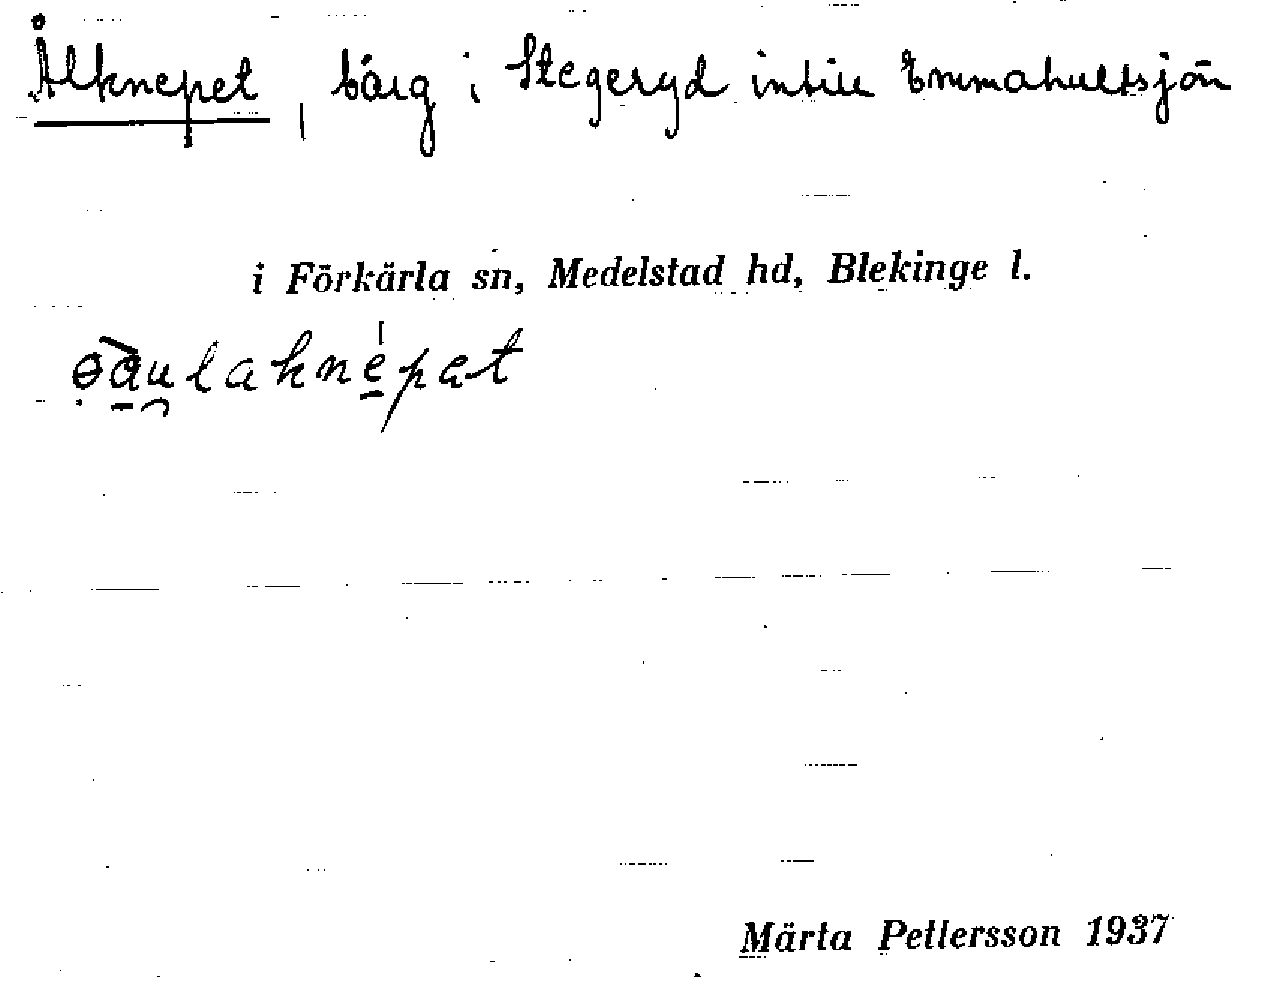 Ålknepet, bärg i Stegeryd intill Emmahultsjön
i Förkärla sn, Medelstad hd, Blekinge l.
Märta Pettersson 1937